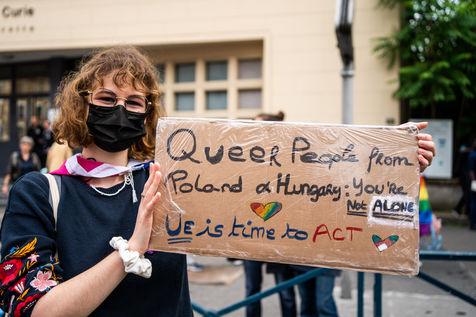 Curie
Queer People from
Poland & Hungary: You're
Not ALONE
UE is time to ACT